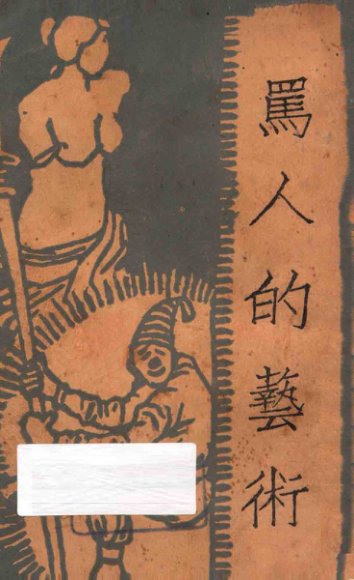 罵人的藝術